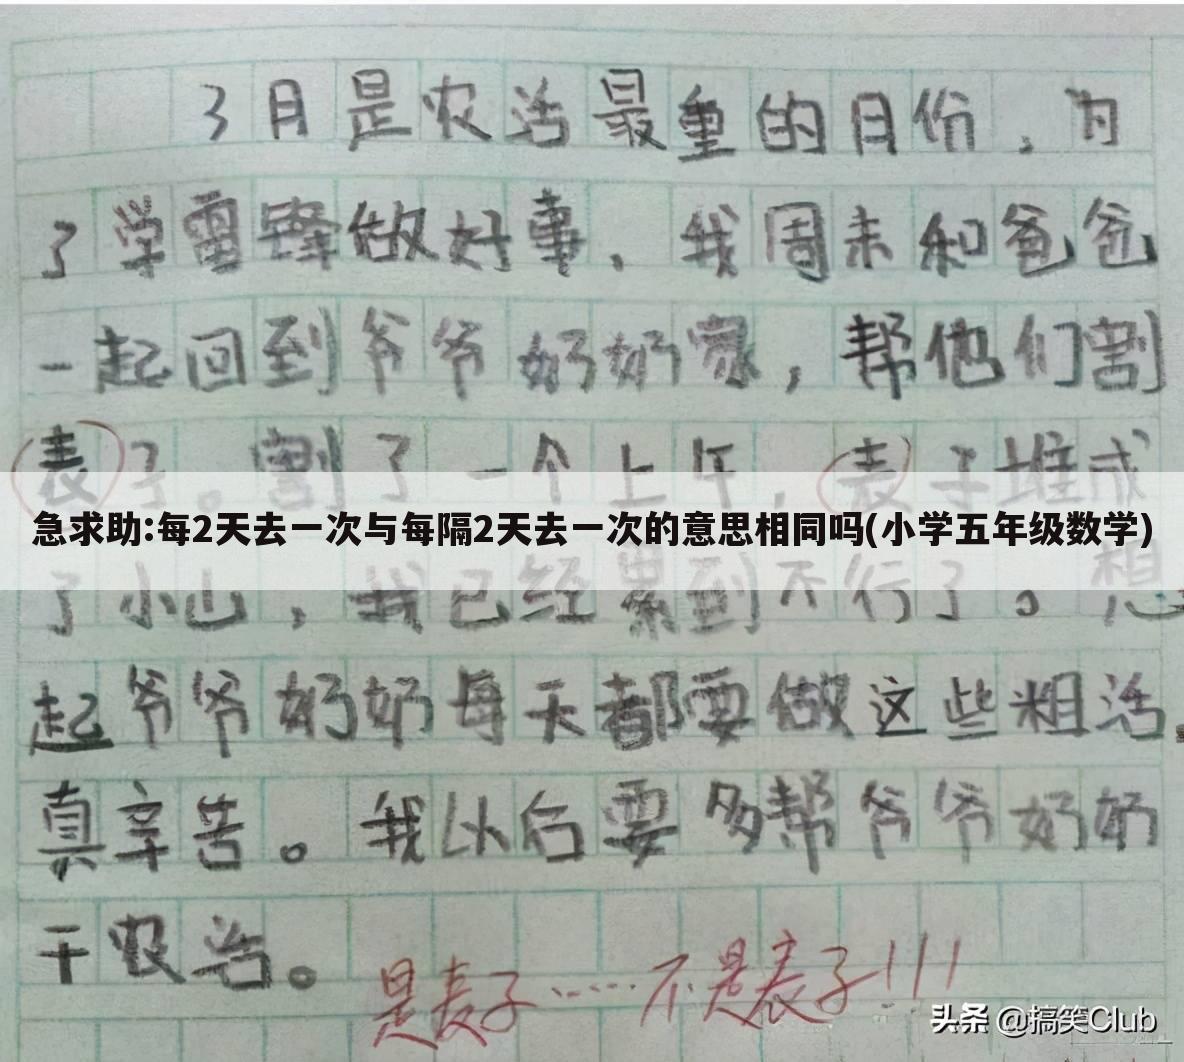 3月是农活最重的月份，为
了学雷锋做好事，我周末和爸爸
一起回到爷爷奶奶家，帮他们割
表子。割了一个上午，表子堆成
急求助:每2天去一次与每隔2天去一次的意思相同吗(小学五年级数学)
了小山，我已经累到不行了。想
起爷爷奶奶每天都要做这些粗活，
真辛苦。我以后要多帮爷爷奶奶
干农活。
是麦子……不是表子!!!
头条 @搞笑Club